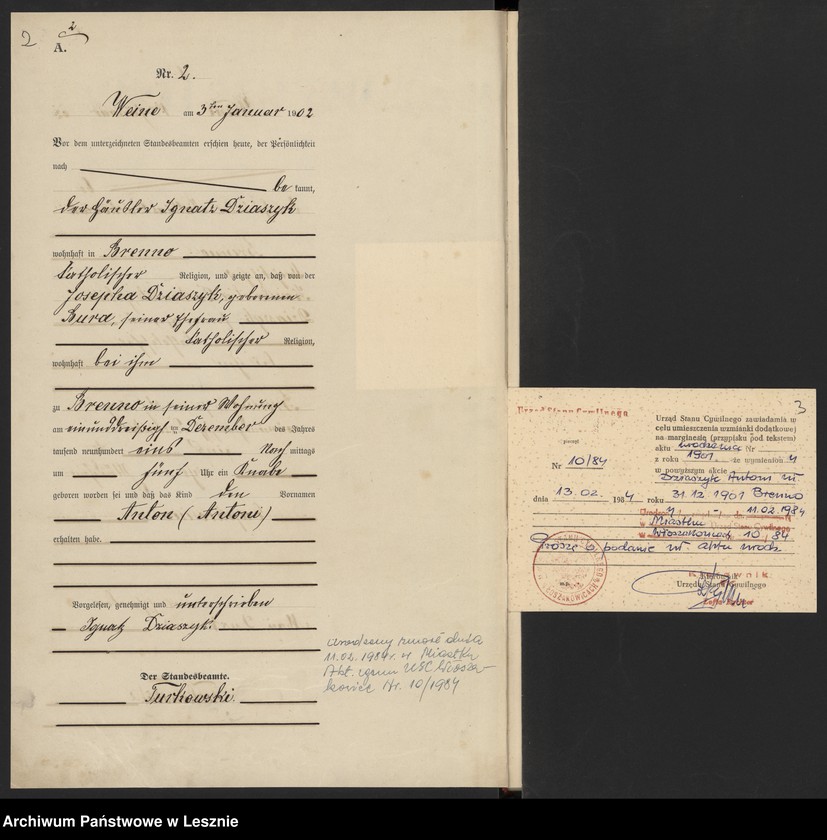 2
2
A.
Nr. 2.
Weine am 3ten Januar 1902
Vor dem unterzeichneten Standesbeamten erschien heute, der Persönlichkeit
nach
be kannt,
der Häusler Ignatz Dziaszyk
wohnhaft in Brenno
katholischer Religion, und zeigte an, daß von der
Josepha Dziaszyk, geborenen
Burd, seiner Ehefrau
katholischer Religion,
wohnhaft bei ihm
zu Brenno in seiner Wohnung
am einunddreißigsten Dezember des Jahres
tausend neunhundert eins Nachmittags
um fünf Uhr ein Knabe
geboren worden sei und daß das Kind den Vornamen
Anton (Antoni)
erhalten habe.
Vorgelesen, genehmigt und unterschrieben
Ignatz Dziaszyk.
Der Standesbeamte.
Turkowski.
urodzony zmarł dnia
11.02.1984 r. w Miastku
Akt zgonu USC Włosza-
kowice Nr. 10/1984
3
Urząd Stanu Cywilnego
Nr 10/84
dnia 13.02. 1984
Urząd Stanu Cywilnego zawiadamia w
celu umieszczenia wzmianki dodatkowej
na marginesie (przypisku pod tekstem)
aktu urodzenia Nr
z roku 1901 że wymieniony
w powyższym akcie
Dziaszyk Antoni ur.
roku 31.12.1901 Brenno
11.02.1984
w Miastku
Włoszakowicach 10 84
Proszę o podanie nr aktu urodz.
Kierownik
Urzędu Stanu Cywilnego
Archiwum Państwowe w Lesznie